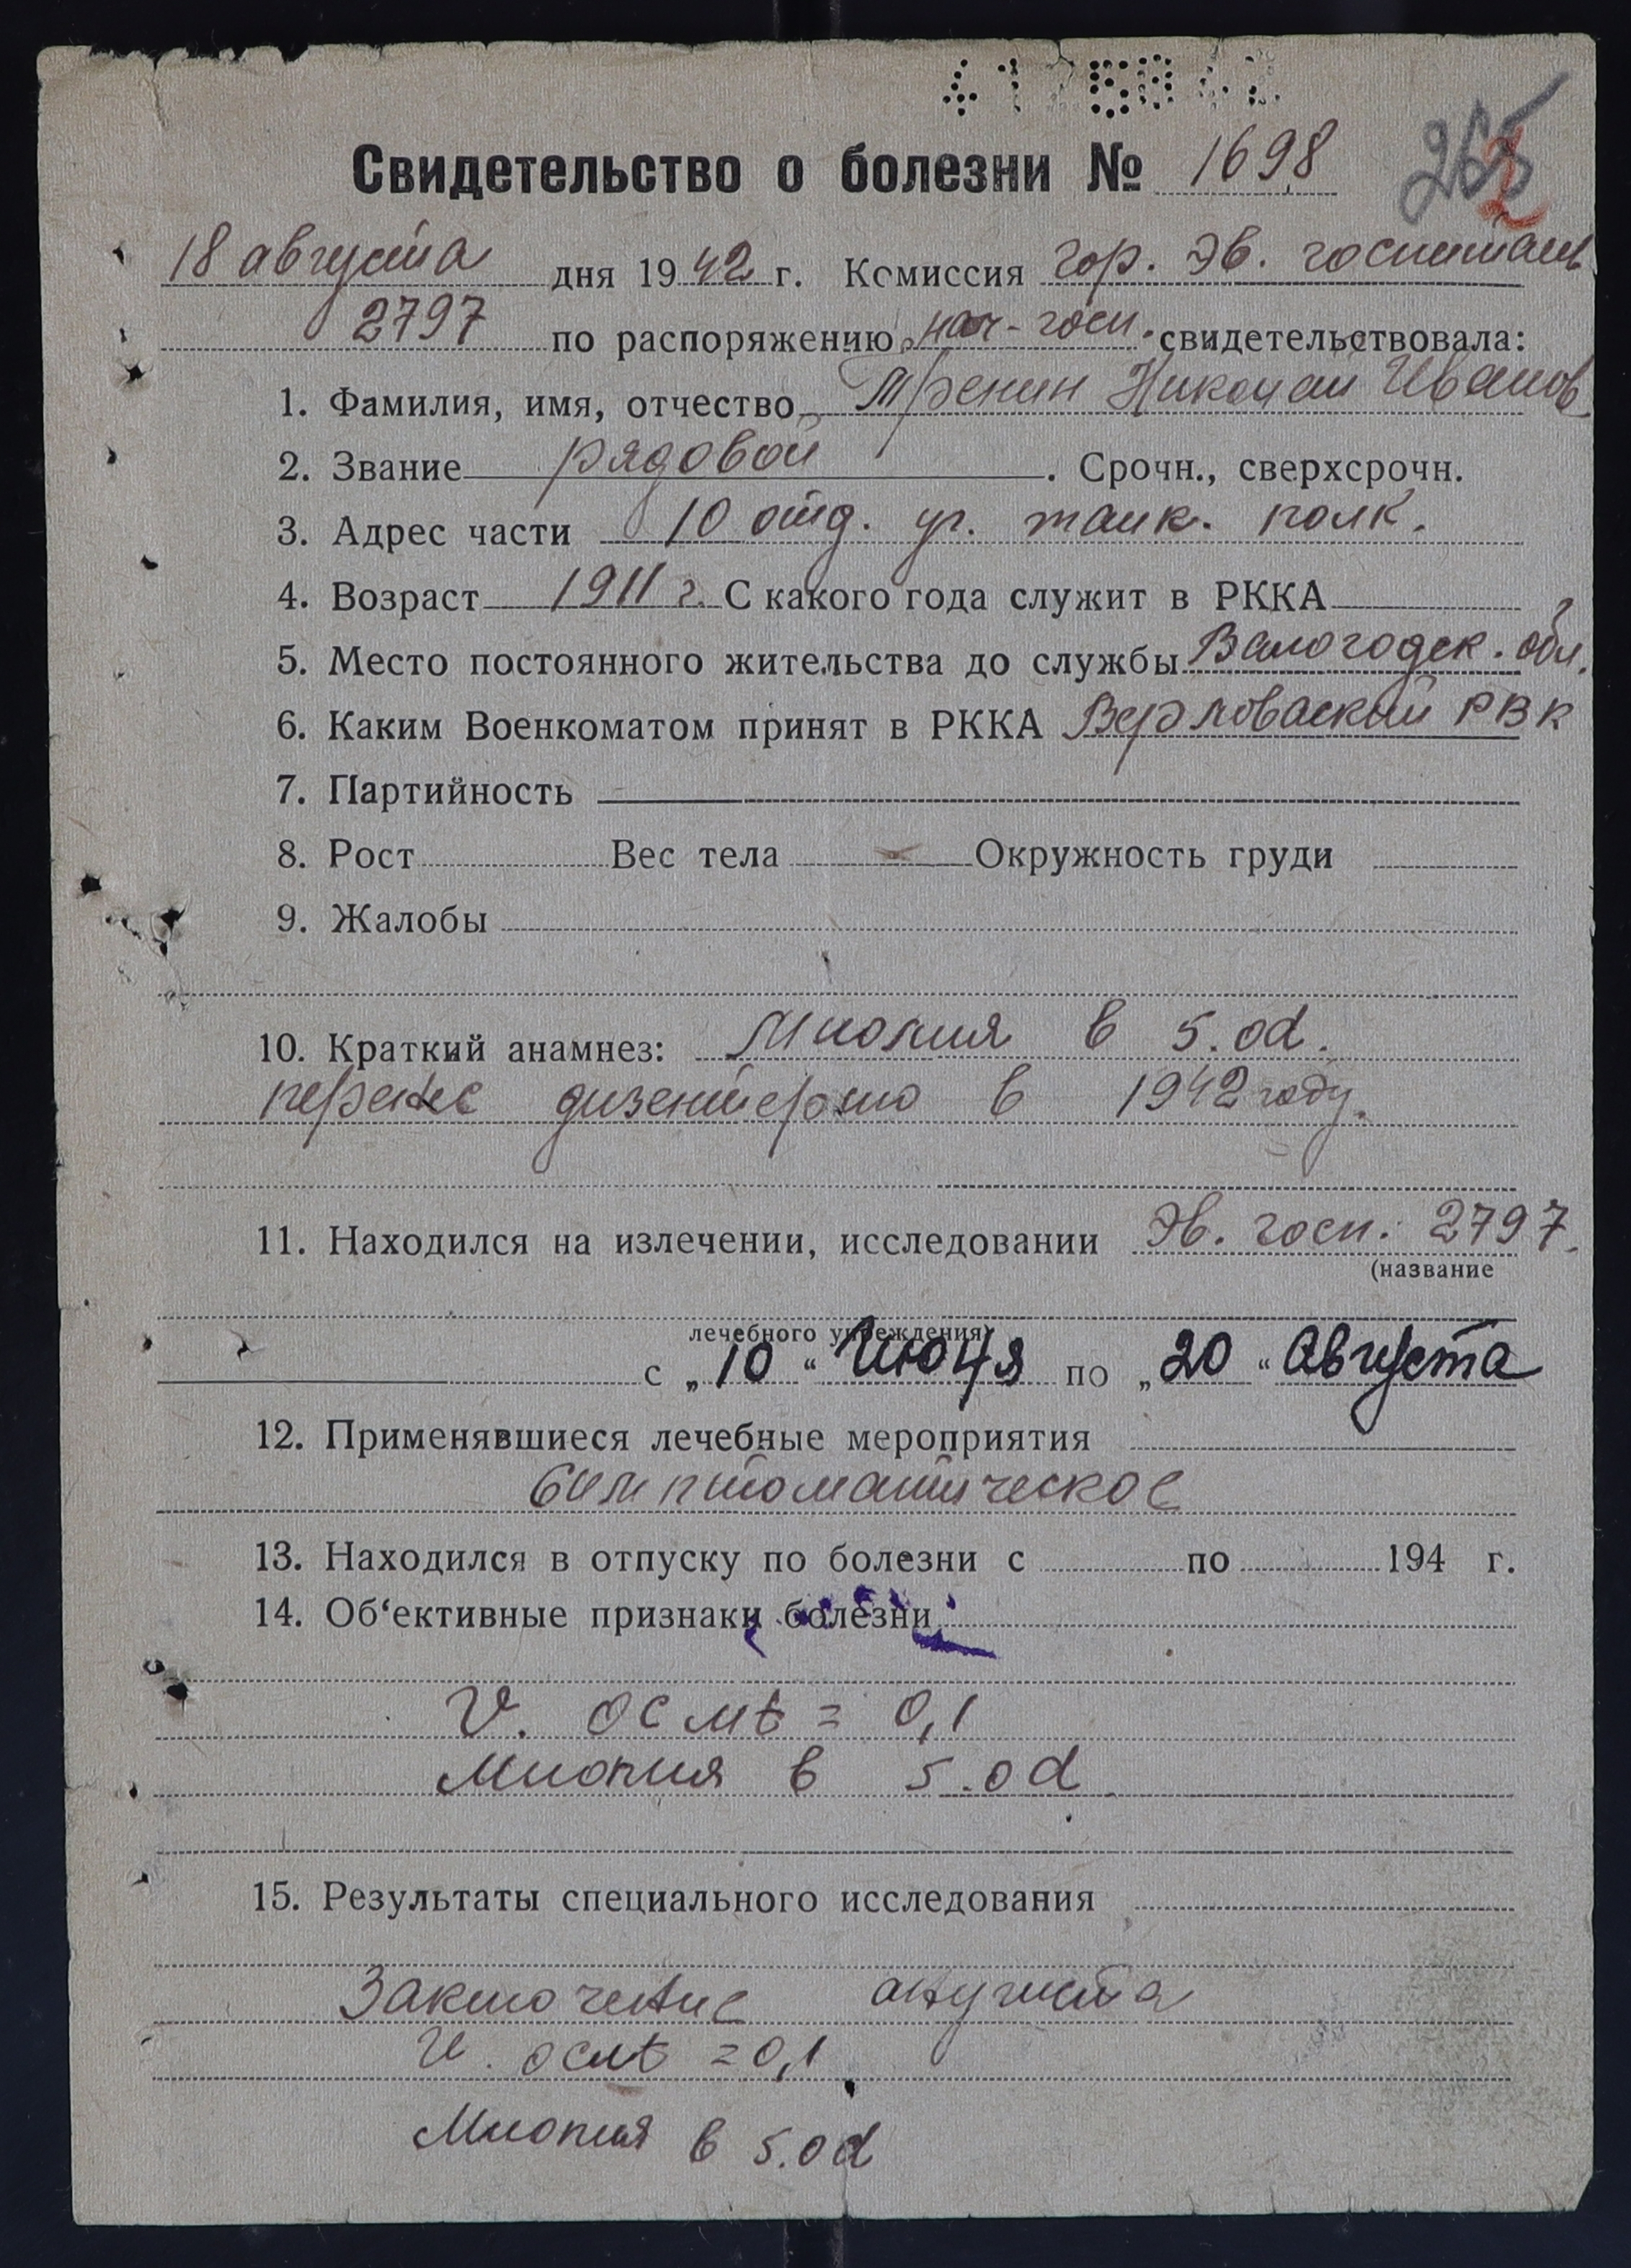 Свидетельство о болезни № 1698
18 августа дня 1942 г. Комиссия гор. эв. госпиталь
2797 по распоряжению нач-госп. свидетельствовала:
1. Фамилия, имя, отчество Тренин Николай Иванов
2. Звание рядовой. Срочн., сверхсрочн.
3. Адрес части 10 отд. уч. танк. полк.
4. Возраст 1911 г. С какого года служит в РККА
5. Место постоянного жительства до службы Вологодск. обл.
6. Каким Военкоматом принят в РККА РВК
7. Партийность
8. Рост Вес тела Окружность груди
9. Жалобы
10. Краткий анамнез: Миопия в 5.od.
перенес дизентерию в 1942 году.
11. Находился на излечении, исследовании Эв. госп. 2797.
(название
лечебного учреждения)
с „10“ Июля по „20“ Августа
12. Применявшиеся лечебные мероприятия
Симптоматическое
13. Находился в отпуску по болезни с по 194 г.
14. Об‘ективные признаки болезни
= 0,1
Миопия в 5.od
15. Результаты специального исследования
Заключение окулиста
= 0,1
Миопия в 5.od